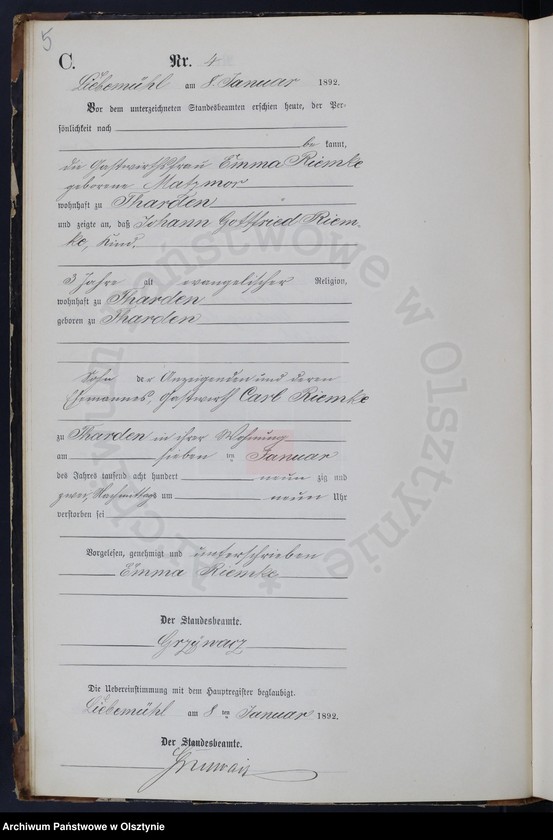 5
C.
Nr. 4
Liebemühl am 8. Januar 1892.
Vor dem unterzeichneten Standesbeamten erschien heute, der Per-
sönlichkeit nach
be kannt,
die Gastwirthsfrau Emma Riemke
geborene Matzmor
wohnhaft zu Tharden
und zeigte an, daß Johann Gottfried Riem-
ke, Kind,
3 Jahre alt evangelischer Religion,
wohnhaft zu Tharden
geboren zu Tharden
Sohn der Anzeigenden und deren
Ehemannes, Gastwirth Carl Riemke
zu Tharden in ihrer Wohnung
am sieben ten Januar
des Jahres tausend acht hundert neun zig und
zwei, Nachmittags um neun Uhr
verstorben sei
Vorgelesen, genehmigt und unterschrieben
Emma Riemke
Der Standesbeamte.
Grzywacz
Die Uebereinstimmung mit dem Hauptregister beglaubigt.
Liebemühl am 8 ten Januar 1892.
Der Standesbeamte.
Archiwum Państwowe w Olsztynie